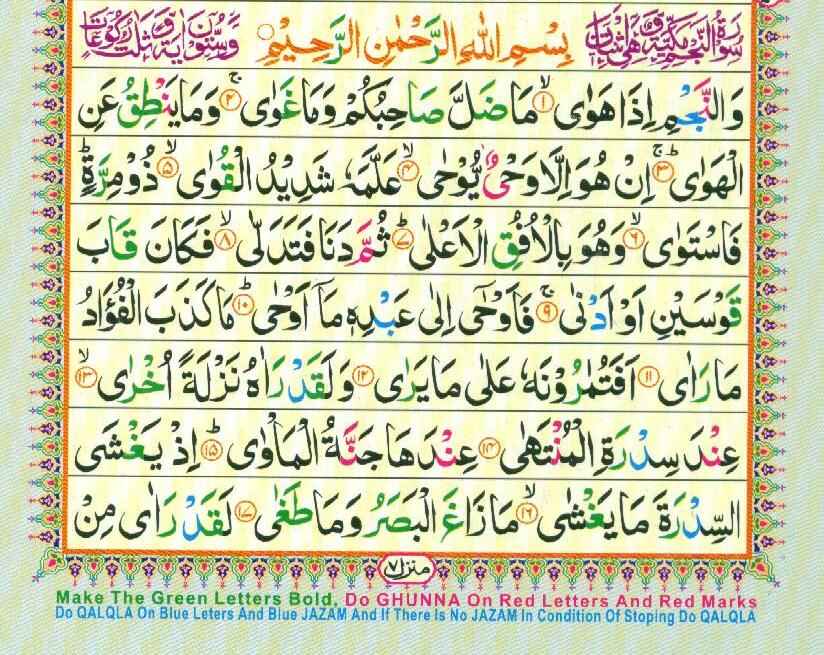 سورة النجم مكية وهي اثنتان بسم الله الرحمن الرحيم وستون آية وثلث ركوعات
وَالنَّجْمِ اِذَا هَوٰى ۱ مَا ضَلَّ صَاحِبُكُمْ وَمَا غَوٰى ۲ وَمَا يَنْطِقُ عَنِ
الْهَوٰى ۳ اِنْ هُوَ اِلَّا وَحْيٌ يُّوْحٰى ۴ عَلَّمَهٗ شَدِيْدُ الْقُوٰى ۵ ذُوْ مِرَّةٍ
فَاسْتَوٰى ۶ وَهُوَ بِالْاُفُقِ الْاَعْلٰى ۷ ثُمَّ دَنَا فَتَدَلّٰى ۸ فَكَانَ قَابَ
قَوْسَيْنِ اَوْ اَدْنٰى ۹ فَاَوْحٰٓى اِلٰى عَبْدِهٖ مَآ اَوْحٰى ۱۰ مَا كَذَبَ الْفُؤَادُ
مَا رَاٰى ۱۱ اَفَتُمٰرُوْنَهٗ عَلٰى مَا يَرٰى ۱۲ وَلَقَدْ رَاٰهُ نَزْلَةً اُخْرٰى ۱۳
عِنْدَ سِدْرَةِ الْمُنْتَهٰى ۱۴ عِنْدَهَا جَنَّةُ الْمَاْوٰى ۱۵ اِذْ يَغْشَى
السِّدْرَةَ مَا يَغْشٰى ۱۶ مَا زَاغَ الْبَصَرُ وَمَا طَغٰى ۱۷ لَقَدْ رَاٰى مِنْ
منزل ۷
Make The Green Letters Bold, Do GHUNNA On Red Letters And Red Marks
Do QALQLA On Blue Leters And Blue JAZAM And If There Is No JAZAM In Condition Of Stoping Do QALQLA